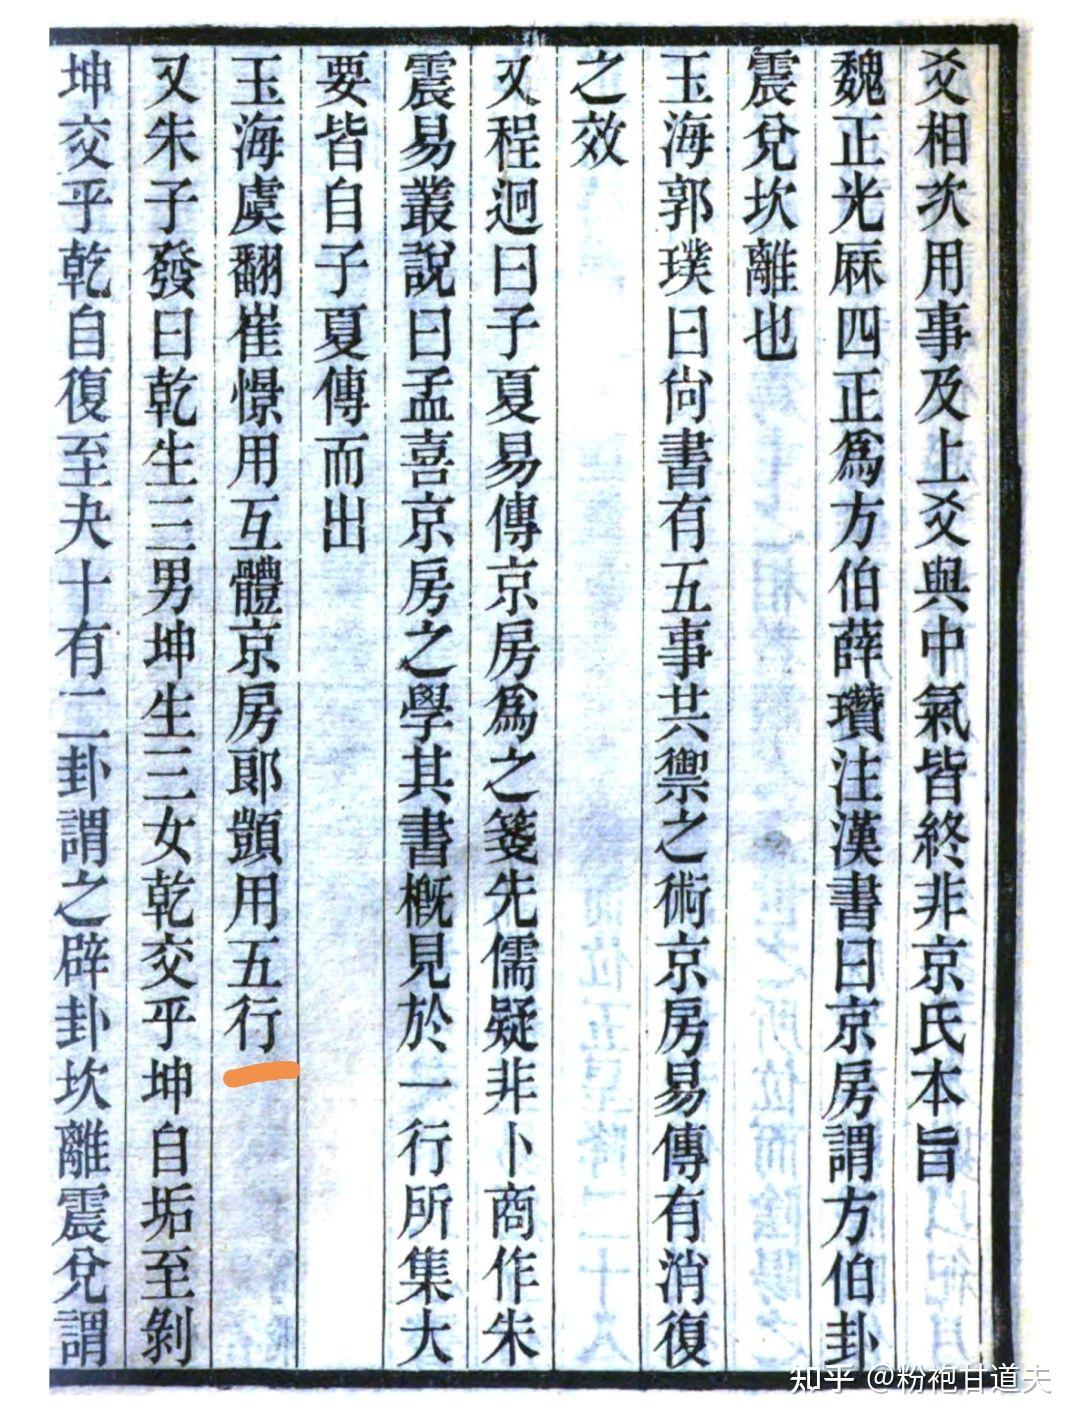 爻相次用事及上爻與中氣皆終非京氏本旨
魏正光厤四正爲方伯薛瓚注漢書曰京房謂方伯卦
震兌坎離也
玉海郭璞曰尙書有五事共禦之術京房易傳有消復
之效
又程迥曰子夏易傳京房爲之箋先儒疑非卜商作朱
震易叢說曰孟喜京房之學其書概見於一行所集大
要皆自子夏傳而出
玉海虞翻崔憬用互體京房郎顗用五行
又朱子發曰乾生三男坤生三女乾交乎坤自垢至剝
坤交乎乾自復至夬十有二卦謂之辟卦坎離震兌謂
知乎 @粉袍甘道夫